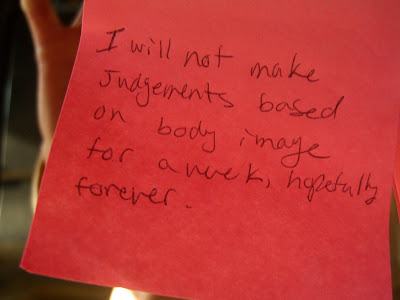 I will not make
Judgements based
on body image
for a week, hopefully
forever.